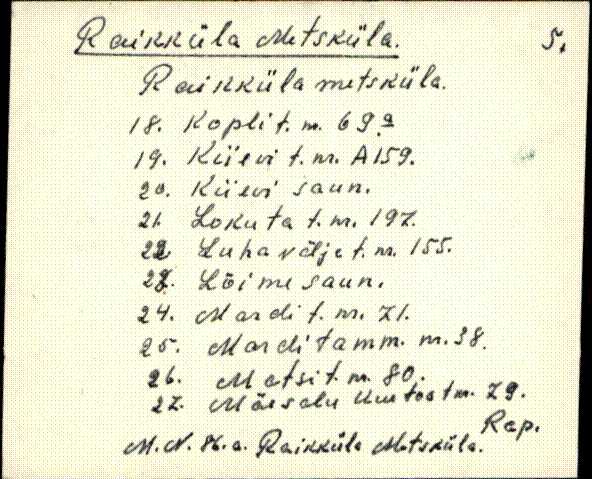 Raikküla Metsküla. 5.
Raikküla metsküla.
18. Kopli t. nr. 69a
19. Küievi t. nr. A159.
20. Küievi saun.
21. Lokuta t. nr. 197.
22. Luhavälje t. nr. 155.
23. Lõime saun.
24. Mardi t. nr. 71.
25. Mardi tamm. nr. 38.
26. Matsi t. nr. 80.
27. Mäesalu nr. 79.
Rap.
M. N. Raikküla Metsküla.